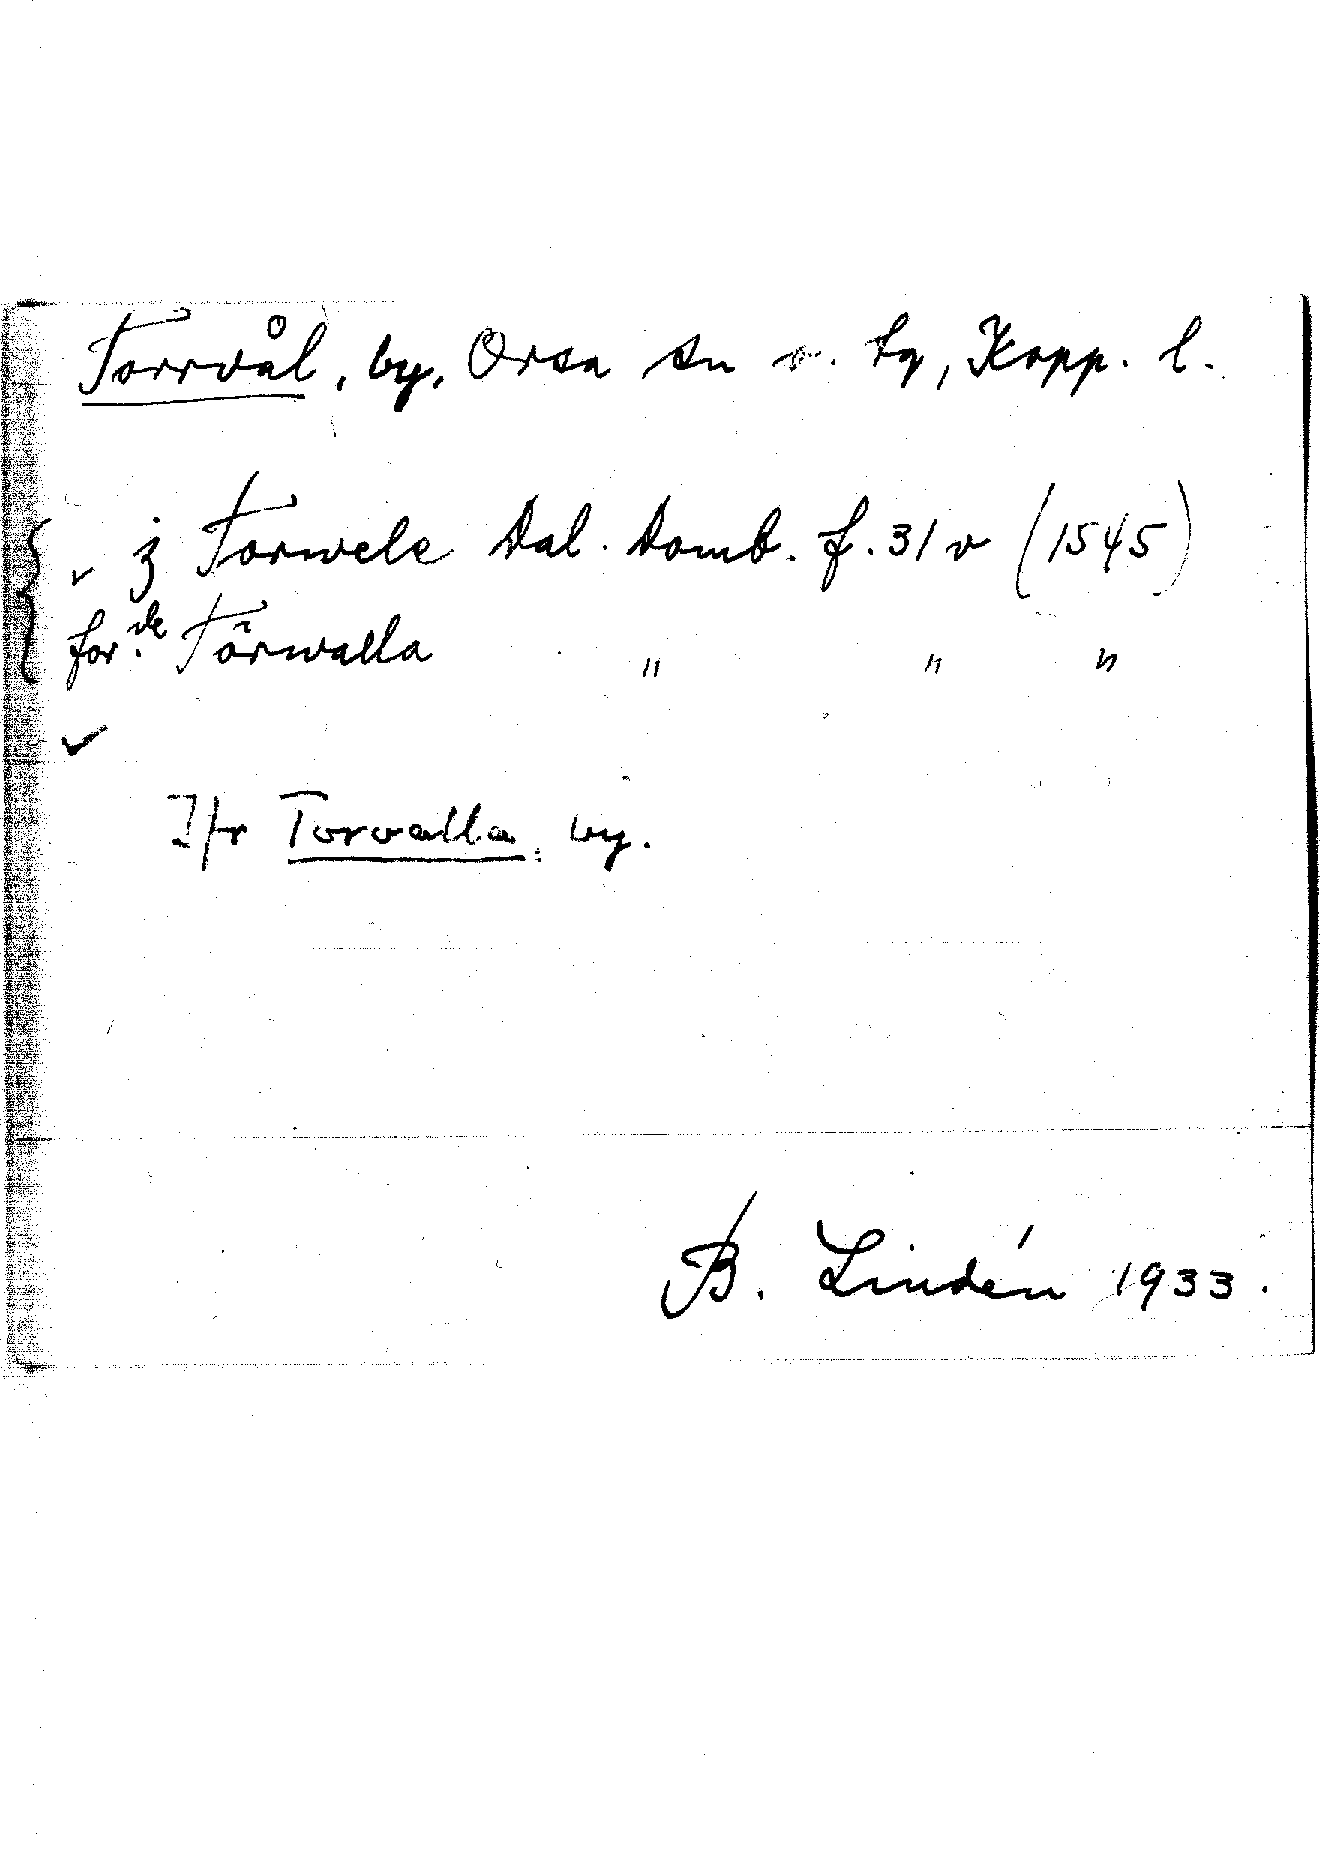 Torrvål, by, Orsa sn o. tg, Kopp. l.
j Torwele Dal. Domb. f. 31 v (1545)
for.de Törwalla " " "
Jfr Torvalla, by.
B. Lindén 1933.